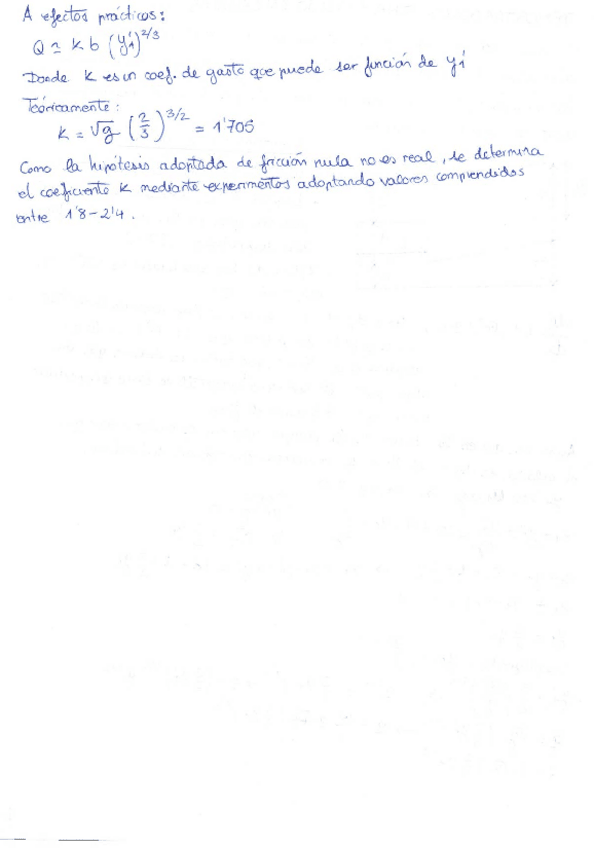 A efectos prácticos:
Q ≃ K b (y'1)^2/3
Donde K es un coef. de gasto que puede ser función de y'1
Teóricamente:
K = √g (2/3)^3/2 = 1'705
Como la hipótesis adoptada de fricción nula no es real, se determina
el coeficiente K mediante experimentos adoptando valores comprendidos
entre 1'8-2'4.